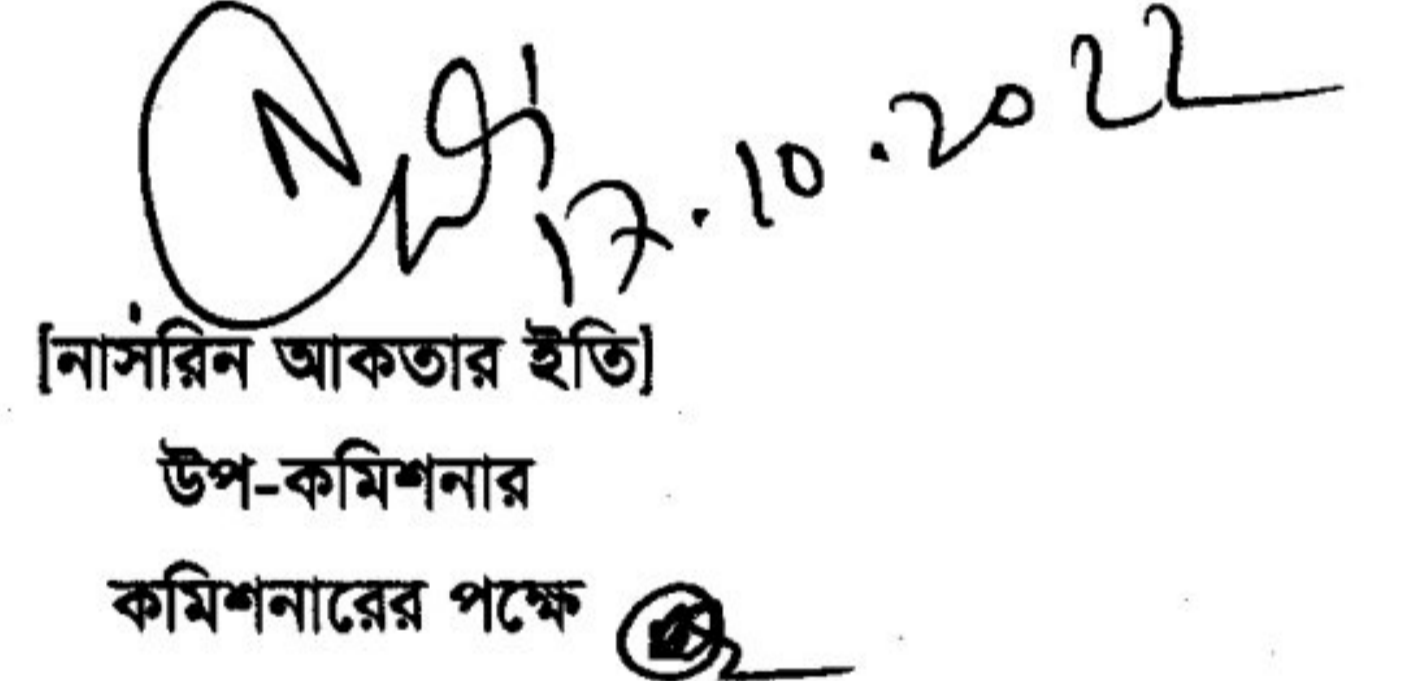 17.10.2022
[নাসরিন আকতার ইতি]
উপ-কমিশনার
কমিশনারের পক্ষে